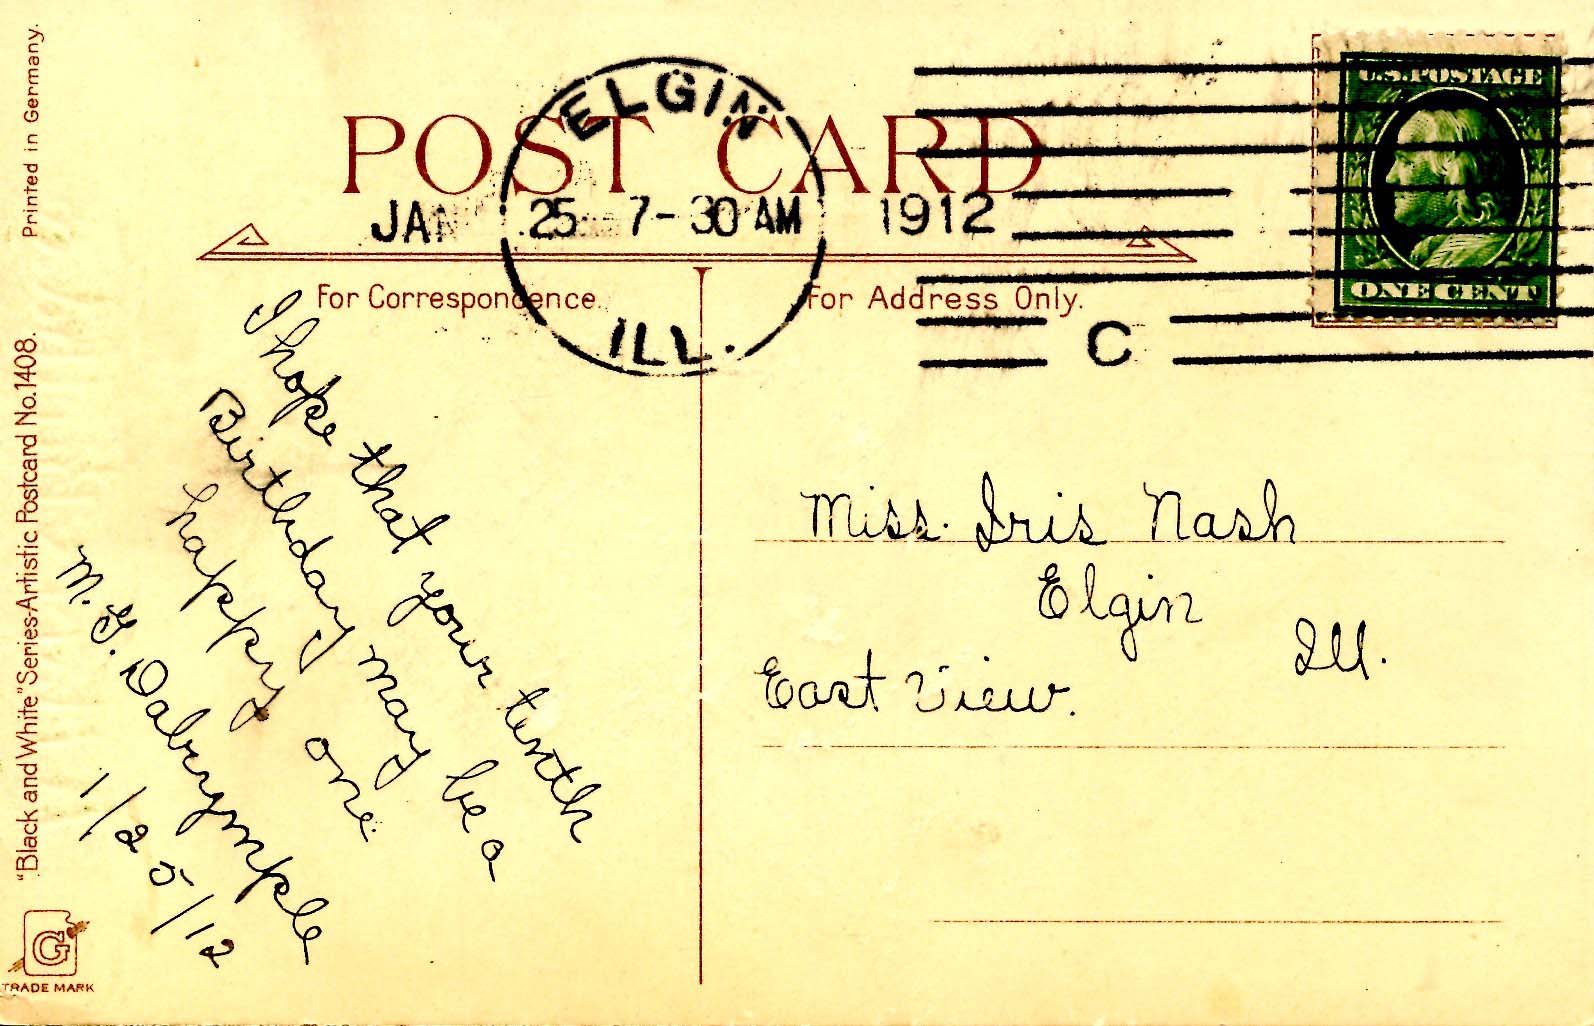 Printed in Germany.
"Black and White" Series-Artistic Postcard No. 1408.
G
TRADE MARK
POST CARD
ELGIN
JAN 25 7-30 AM 1912
ILL.
C
U.S. POSTAGE
ONE CENT
For Correspondence.
For Address Only.
I hope that your tenth
Birthday may be a
happy one.
M. G. Dalrymple
1/25/12
Miss. Iris Nash
Elgin
Ill.
East View.